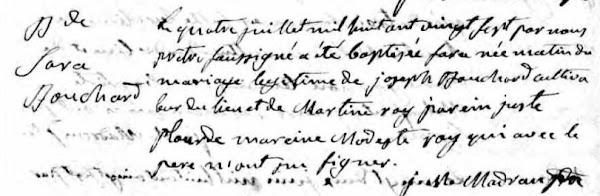 B de
Sara
Bouchard
Le quatre juillet mil huit cent vingt sept par nous
prêtre soussigné a été baptisée sara née matin du
mariage legitime de joseph Bouchard cultiva
teur du lieu et de Martine roy parein juste
plourde mareine Modeste roy qui avec le
pere n'ont pu signer.